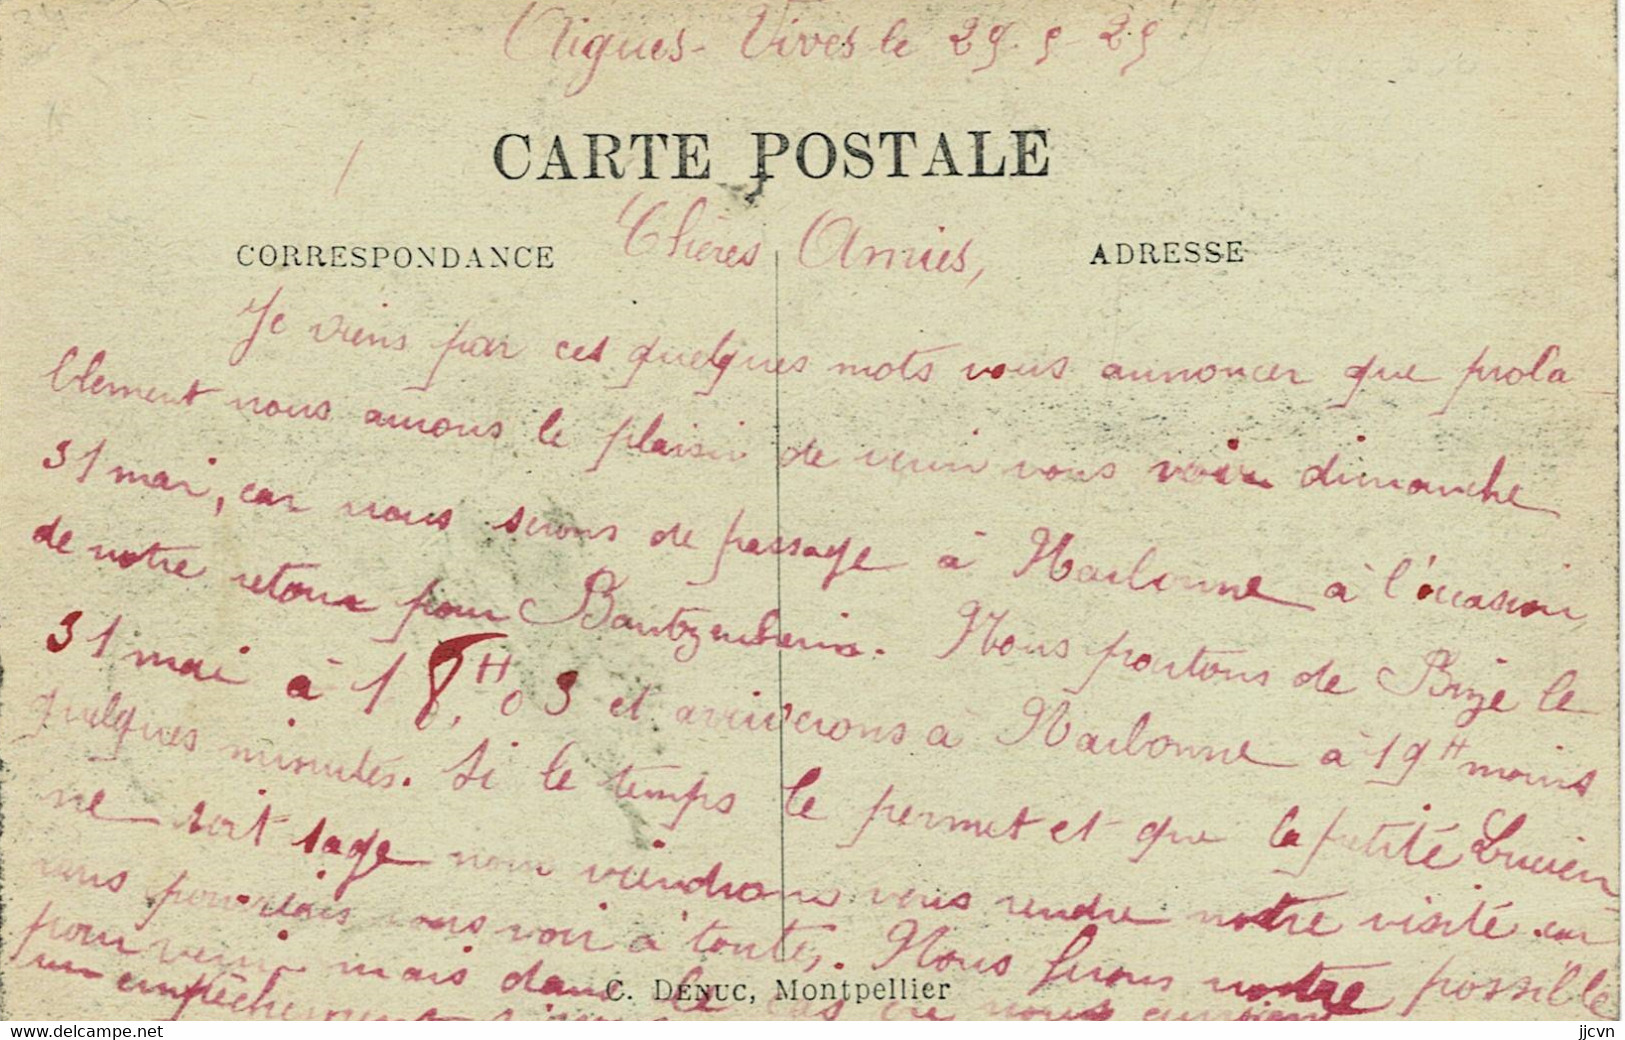 Aigues-Vives le 29-5-25
CARTE POSTALE
CORRESPONDANCE
Chères Amies,
ADRESSE
Je viens par ces quelques mots vous annoncer que proba
blement nous aurons le plaisir de venir vous voir dimanche
31 mai, car nous serons de passage à Narbonne à l'occasion
de notre retour pour Bantzenheim. Nous partons de Bize le
31 mai à 18H,03 et arriverons à Narbonne à 19H moins
quelques minutes. Si le temps le permet et que la petite Lucien
ne soit sage nous viendrons vous rendre notre visite car
pourriais vous voir à toute. Nous ferons notre possible
pour venir mais dans le cas où nous aurions
un empêchement
C. DENUC, Montpellier
jjcvn